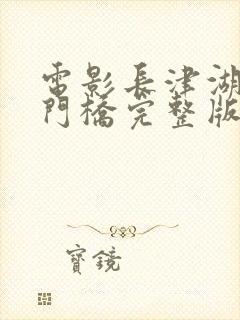 電影長津湖
門橋完整版
寶鏡